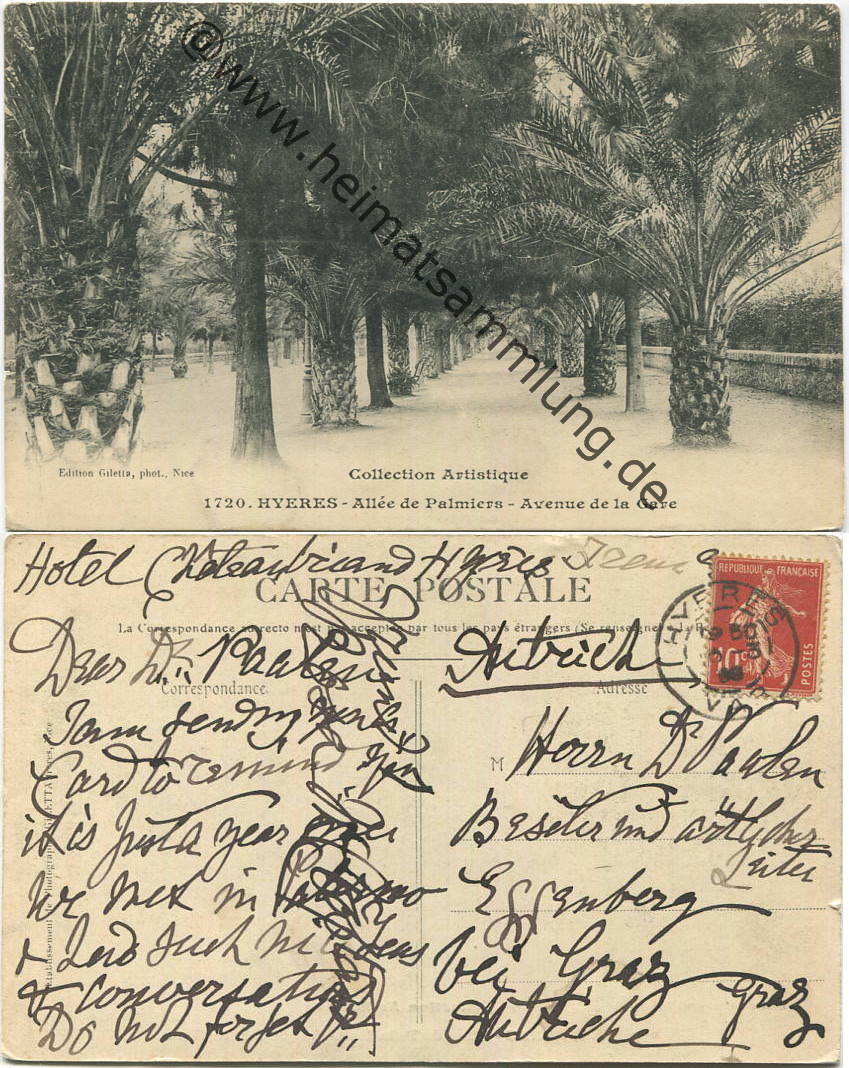 © www.heimatsammlung.de
Edition Giletta, phot., Nice
Collection Artistique
1720. HYERES - Allée de Palmiers - Avenue de la Gare
Hotel Hyères
CARTE POSTALE
La Correspondance au recto n'est pas acceptée par tous les pays étrangers (Se renseigner
REPUBLIQUE FRANÇAISE
10c
POSTES
HYERES
VAR
Dear Dr. Paalen
Autriche
Correspondance
Adresse
I am sending you this
Card to remind you
it is just a year since
we met in Palermo
& had such nice teas
& conversations
Do not forget
M
Herrn Dr Paalen
Besitzer und ärtlicher
Leiter
Eggenberg
bei Graz
Graz
Autriche